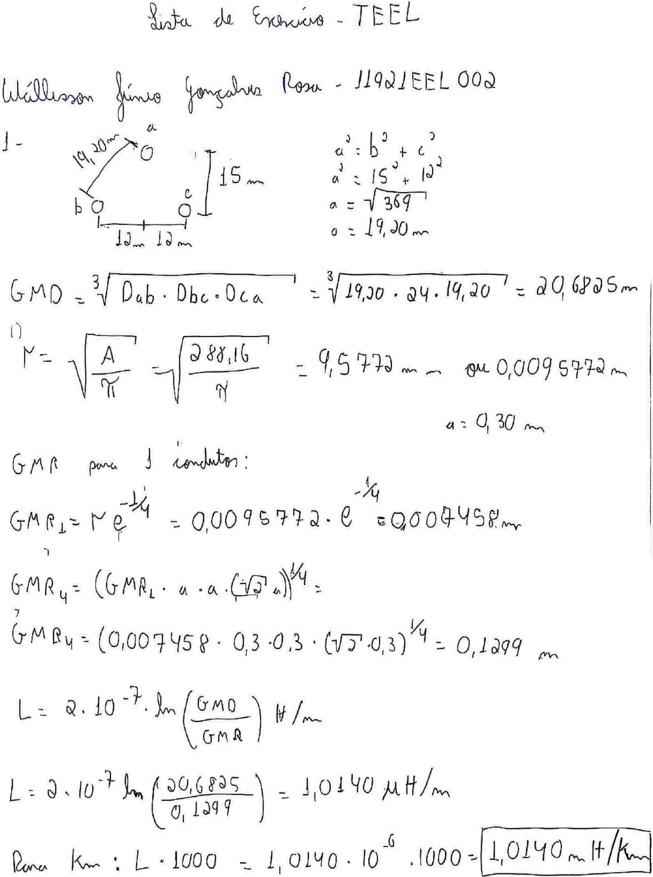 Lista de Exercício - TEEL
Wállisson Júnio Gonçalves Rosa - 11921EEL002
1-
a
19,20m
15m
b
c
12m 12m
a² = b² + c²
a² = 15² + 12²
a = √369
a = 19,20m
GMD = ∛(Dab · Dbc · Dca) = ∛(19,20 · 24 · 19,20) = 20,6825m
1)
r = √(A/π) = √(288,16/π) = 9,5772 mm ou 0,0095772m
a = 0,30 m
GMR para 1 condutor:
GMR₁ = r e^(-1/4) = 0,0095772 · e^(-1/4) = 0,007458m
GMR₄ = (GMR₁ · a · a · (√2 a))^(1/4) =
GMR₄ = (0,007458 · 0,3 · 0,3 · (√2 · 0,3))^(1/4) = 0,1299 m
L = 2 · 10⁻⁷ · ln(GMD/GMR) H/m
L = 2 · 10⁻⁷ ln(20,6825/0,1299) = 1,0140 μH/m
Para Km : L · 1000 = 1,0140 · 10⁻⁶ · 1000 = 1,0140 mH/Km